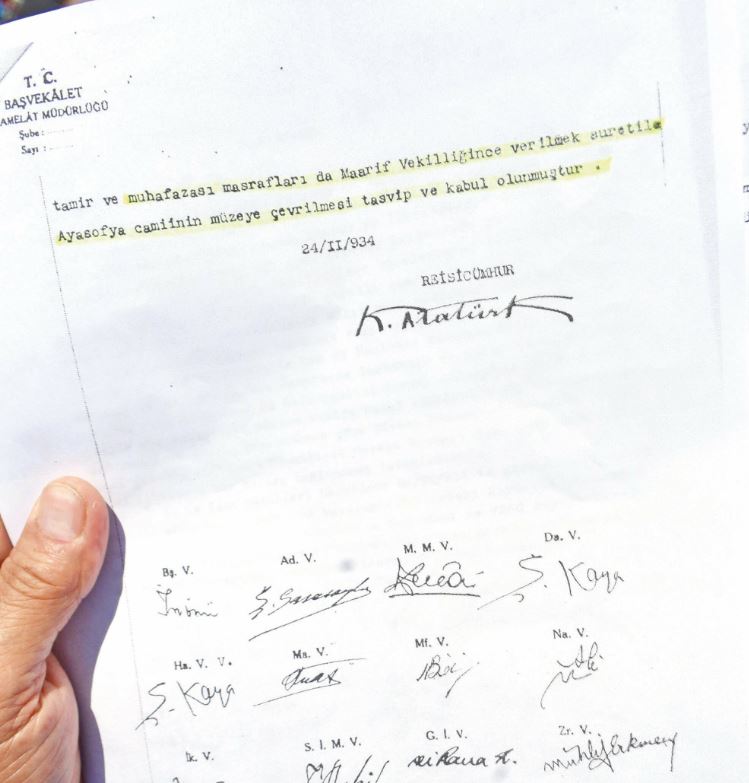 T. C.
BAŞVEKÂLET
AMELÂT MÜDÜRLÜĞÜ
Şube :
Sayı :
tamir ve muhafazası masrafları da Maarif Vekilliğince verilmek suretile
Ayasofya camiinin müzeye çevrilmesi tasvip ve kabul olunmuştur .
24/II/934
REİSİCÜMHUR
K. Atatürk
Bş. V. Ad. V. M. M. V. Da. V.
İnönü Ş. Kaya
Ha. V. V. Ma. V. Mf. V. Na. V.
Ş. Kaya Fuat
İk. V. S. İ. M. V. G. İ. V. Zr. V.
Muhlis Erkmen